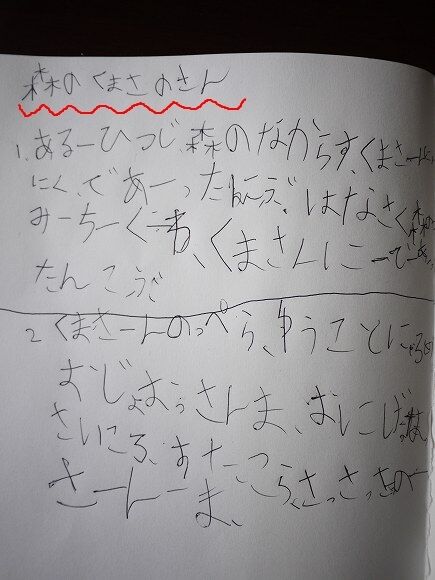 森のくまさのさん
1.あるーひつじ、森のなからす、くまさー
にく、であーったんこぶ、はなさく森
みーちーくーわ、くまさんにーで
たんこぶ
2 くまさーんのっぺら、ゆうことに
おじょおうさんま、おにこ
さいころ、すたこつら、さっさっさのー
さーんーま、